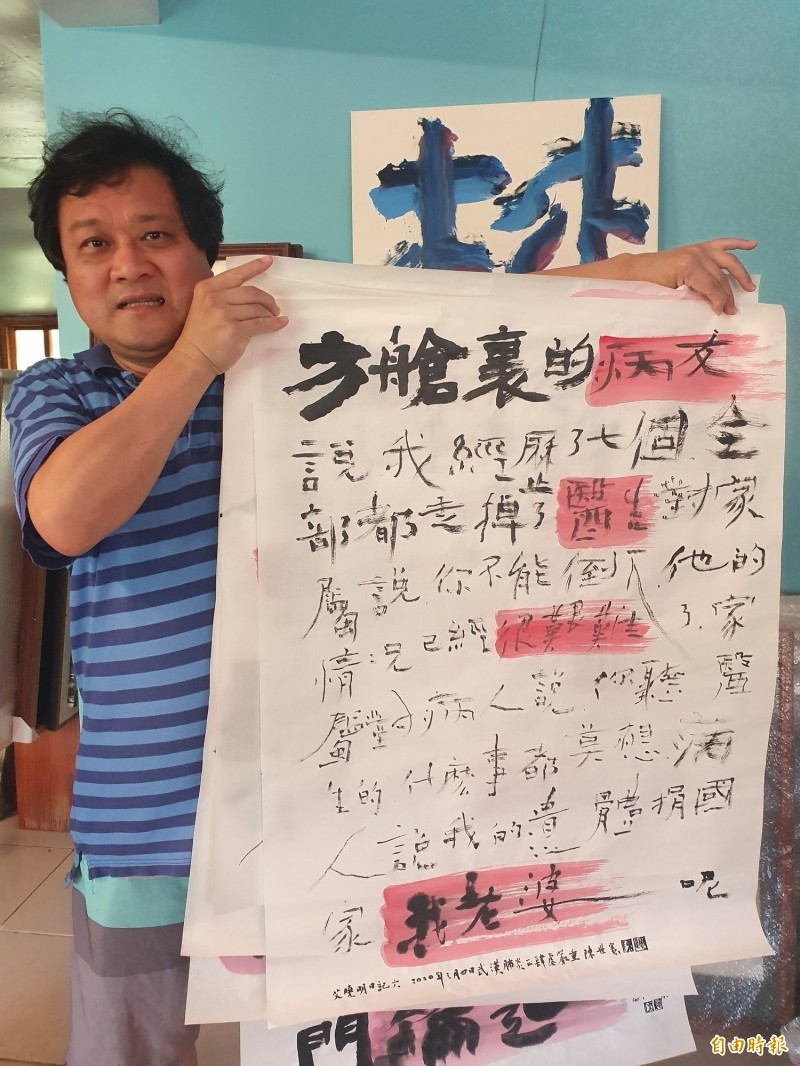 方艙裏的病友
說我經歷了七個.全
部都走掉了醫生對家
屬說.你不能倒下.他的
情況已經很艱難了.家
屬對病人說.你聽醫
生的什麼事都莫想.病
人說我的遺體捐國
家我老婆呢
艾曉明日記六 2020年2月四日武漢肺炎正肆虐嚴重 陳世憲
門鑰
自由時報